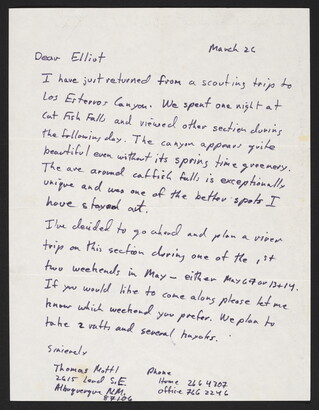 March 26
Dear Elliot
I have just returned from a scouting trip to
Los Esteros Canyon. We spent one night at
Cat Fish Falls and viewed other section during
the following day. The canyon appears quite
beautiful even without its spring time greenery.
The are around catfish falls is exceptionally
unique and was one of the better spots I
have stayed at.
I've decided to go ahead and plan a river
trip on this section during one of the 1st
two weekends in May – either May 6+7 or 13+14.
If you would like to come along please let me
know which weekend you prefer. We plan to
take 2 rafts and several kayaks.
Sincerely
Thomas Mottl
2615 Lead S.E.
Albuquerque N.M.
87106
Phone
Home 266 4707
office 766 2246